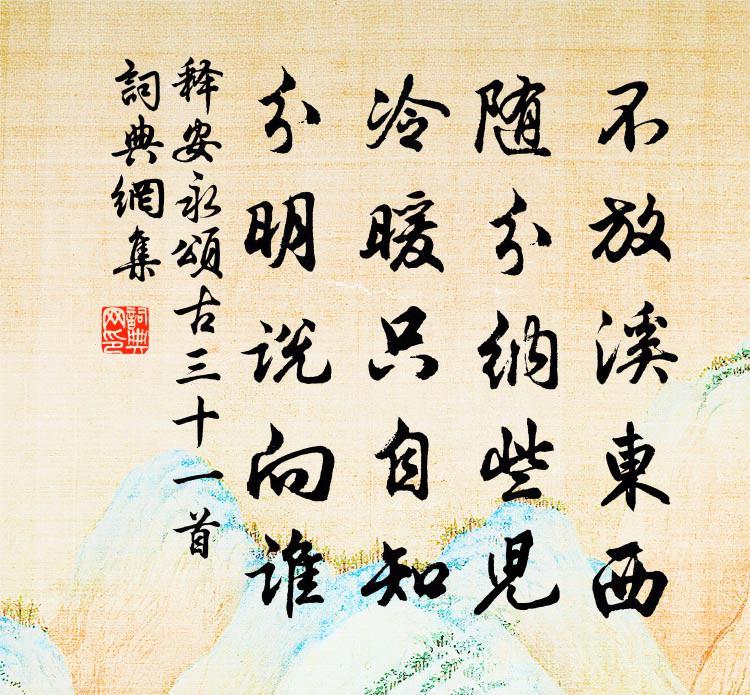 不放溪東西
随分納些児
冷暖只自知
分明説向誰
释安永頌古三十一首
詞典網集
詞典网印